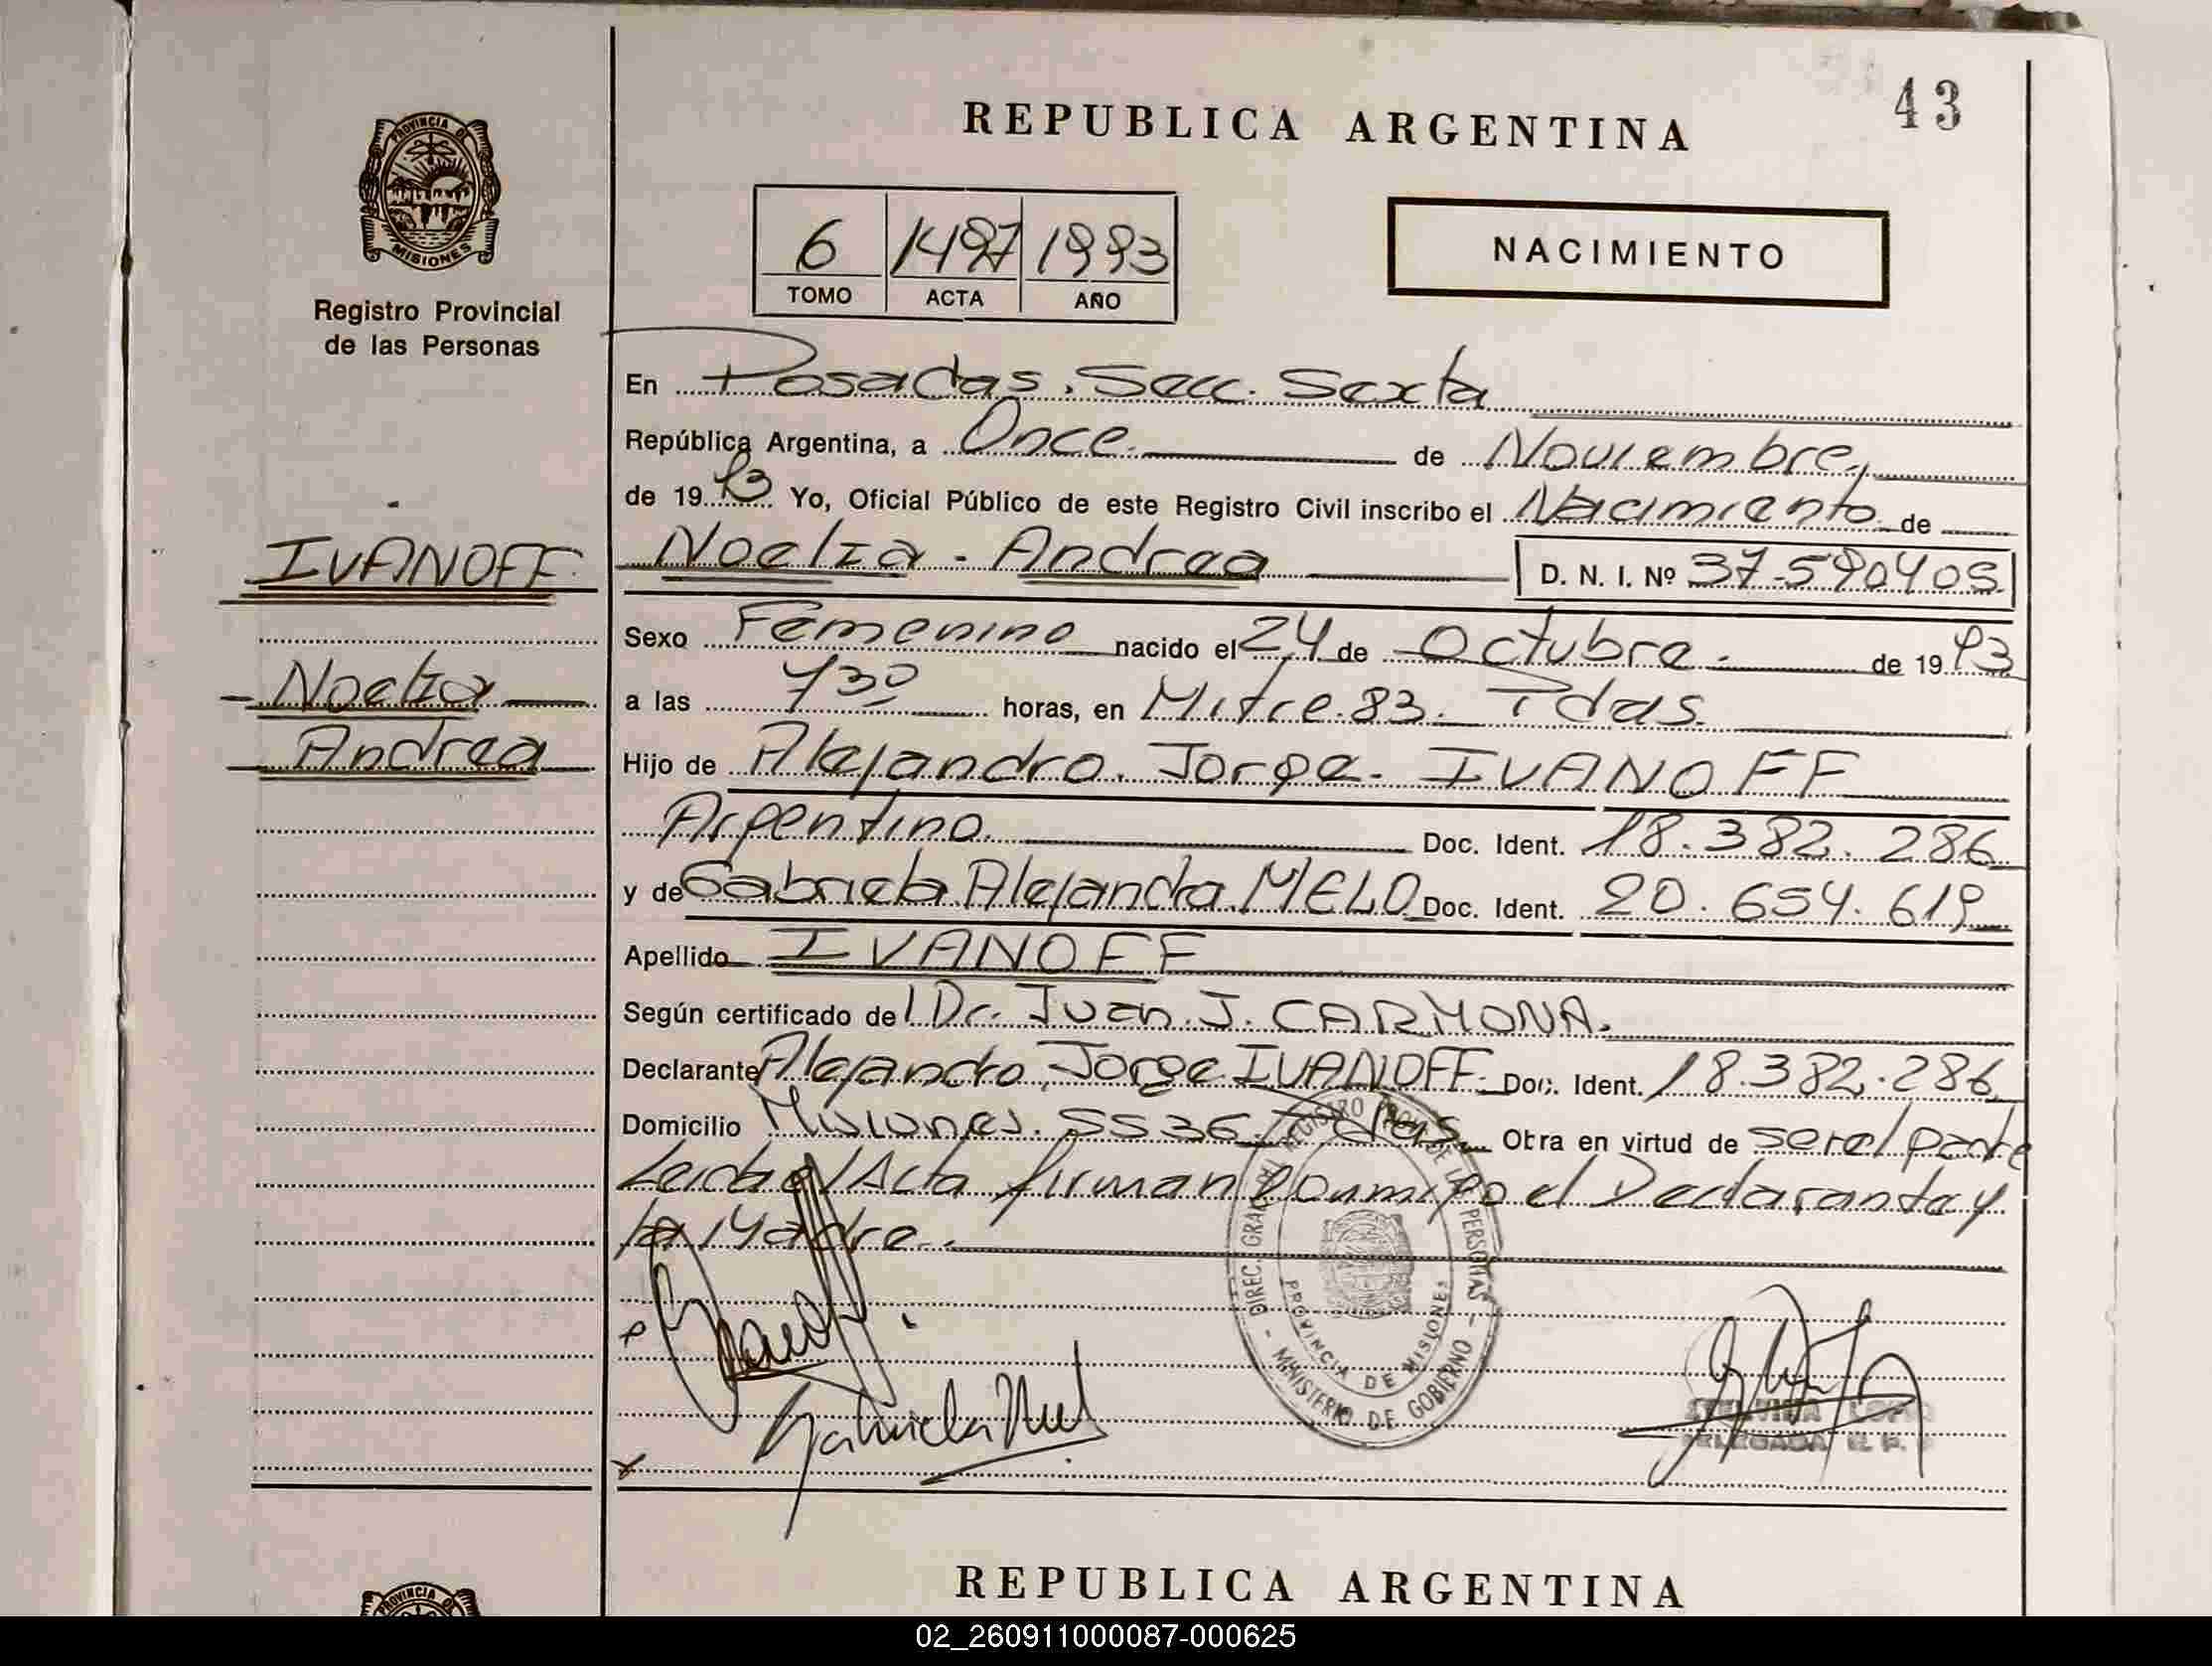 43
REPUBLICA ARGENTINA
PROVINCIA DE MISIONES
Registro Provincial
de las Personas
6 1497 1993
TOMO ACTA AÑO
NACIMIENTO
En Posadas. Secc. Sexta
República Argentina, a Once de Noviembre,
de 1993 Yo, Oficial Público de este Registro Civil inscribo el Nacimiento de
IVANOFF
Noelia - Andrea D. N. I. Nº 37.590405
Sexo Femenino nacido el 24 de Octubre de 1993
Noelia
a las 730 horas, en Mitre 83. Pdas.
Andrea
Hijo de Alejandro Jorge IVANOFF
Argentino Doc. Ident. 18.382.286
y de Gabriela Alejandra MELO Doc. Ident. 20.654.619
Apellido IVANOFF
Según certificado del Dr. Juan J. CARMONA.
Declarante Alejandro Jorge IVANOFF Doc. Ident. 18.382.286
Domicilio Misiones 5536 Pdas. Obra en virtud de ser el padre
Leida el Acta firman conmigo el Declarante y
la Madre.
DIREC. GRAL. DEL REGISTRO PROV. DE LAS PERSONAS
PROVINCIA DE MISIONES
MINISTERIO DE GOBIERNO
Gabriela Mel
DELEGADA R. P.
REPUBLICA ARGENTINA
02_260911000087-000625